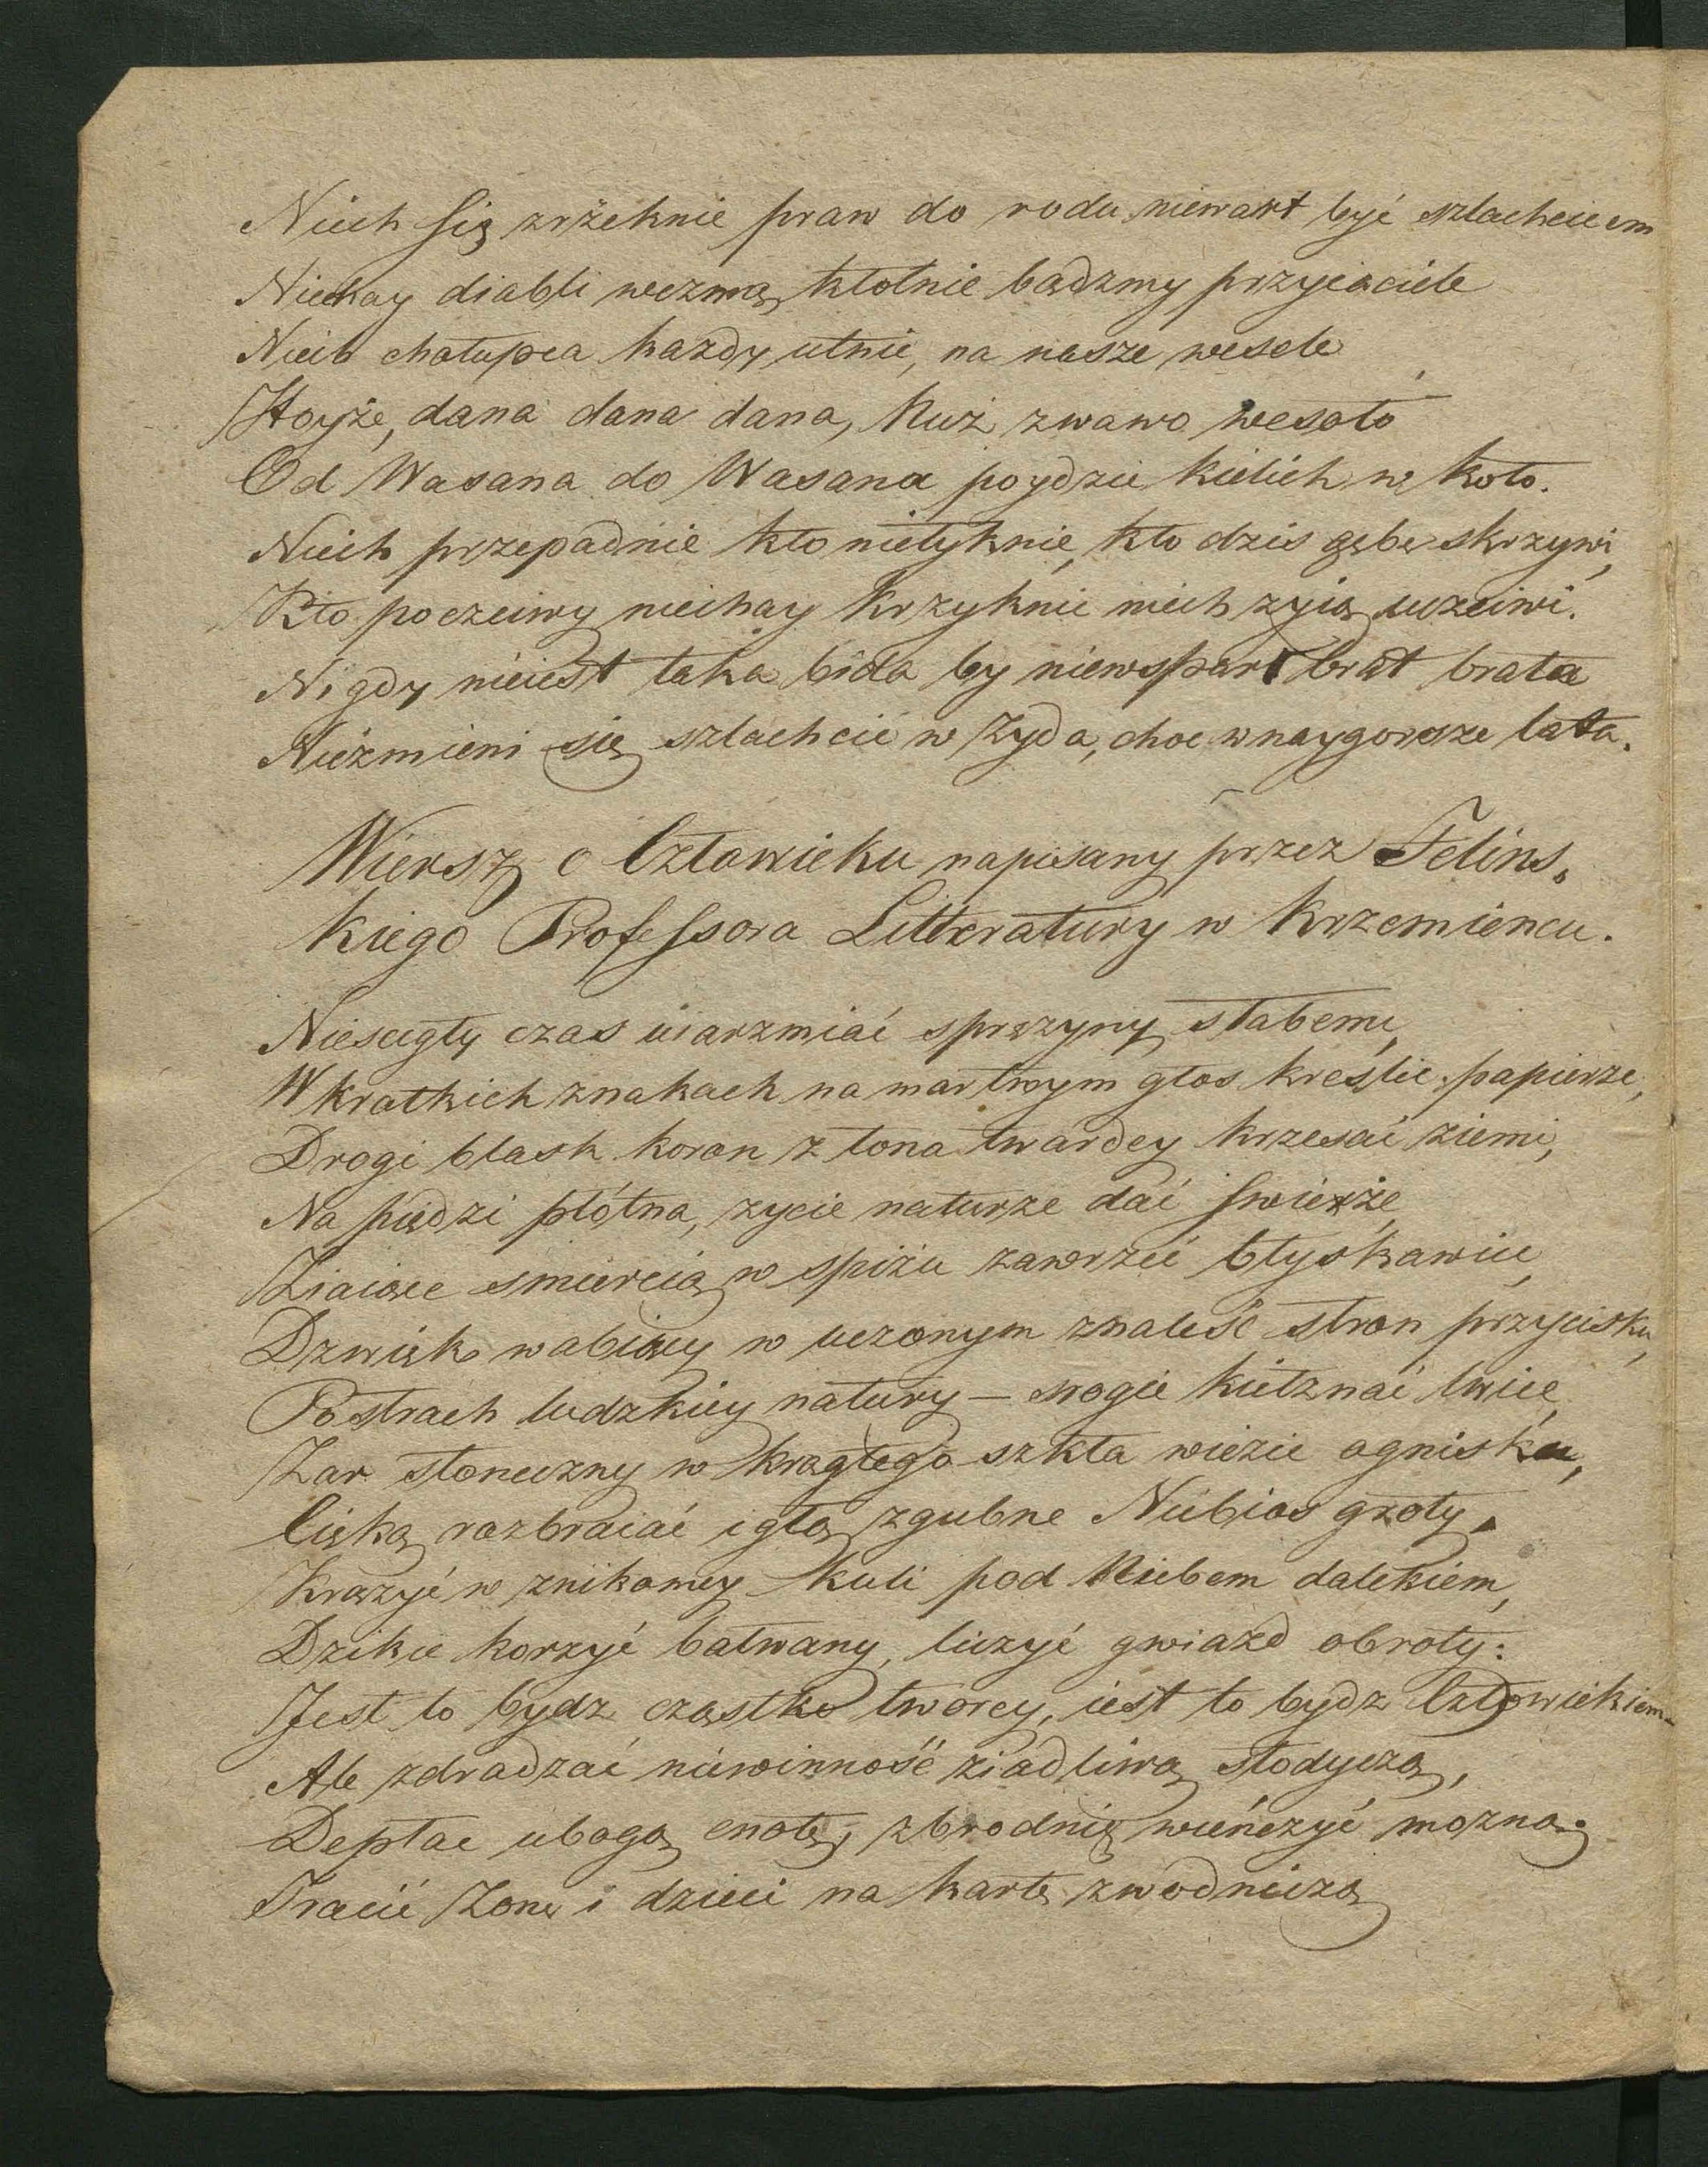 Niech się zrżeknie praw do rodu niewart być szlachcicem
Niechay diabli wezmą kłotnie bądzmy przyiaciele
Niech chałupca kazdy utnie, na nasze wesele
Hoyże, dana dana dana, Nuż zwawo wesoło
Od Wasana do Wasana poydzie kielich w koło.
Niech przepadnie kto nietyknie, kto dzis gębę skrzywi,
Kto poczciwy niechay krzyknie niech zyią uczciwi.
Nigdy nieiest taka bida by niewsparł brat brata
Niezmieni się szlachcic w Zyda, choc w naygorsze lata.
Wiersz o Człowieku napisany przez Felins.
kiego Professora Litteratury w Krzemiencu.
Niescigły czas uiarzmiać sprężyny słabemi,
W kratkich znakach na martwym głos kreślic papierze,
Drogi blask koron z łona twardey krzesać ziemi,
Na piędzi płótna, zycie naturze dać swieże,
Ziaiące smiercią w spiżu zawrzeć błyskawice,
Dzwięk wabiący w uczonym znaleść stron przycisku,
Postrach ludzkiey natury – srogie kiełznać lwice,
Zar słoneczny w krągłego szkła wiezic ognisku,
Cięką rozbraiać igłą zgubne Niebios groty,
Krązyć w znikomey kuli pod Niebem dalekiem,
Dzikie korzyć bałwany, liczyć gwiazd obroty:
Jest to bydz cząstką tworcy, iest to bydz Człowiekiem
Ale zdradzać niewinność ziadliwą słodyczą,
Deptac ubogą cnotę, zbrodnię wieńczyć mozną
Tracić Zonę i dzieci na kartę zwodniczą